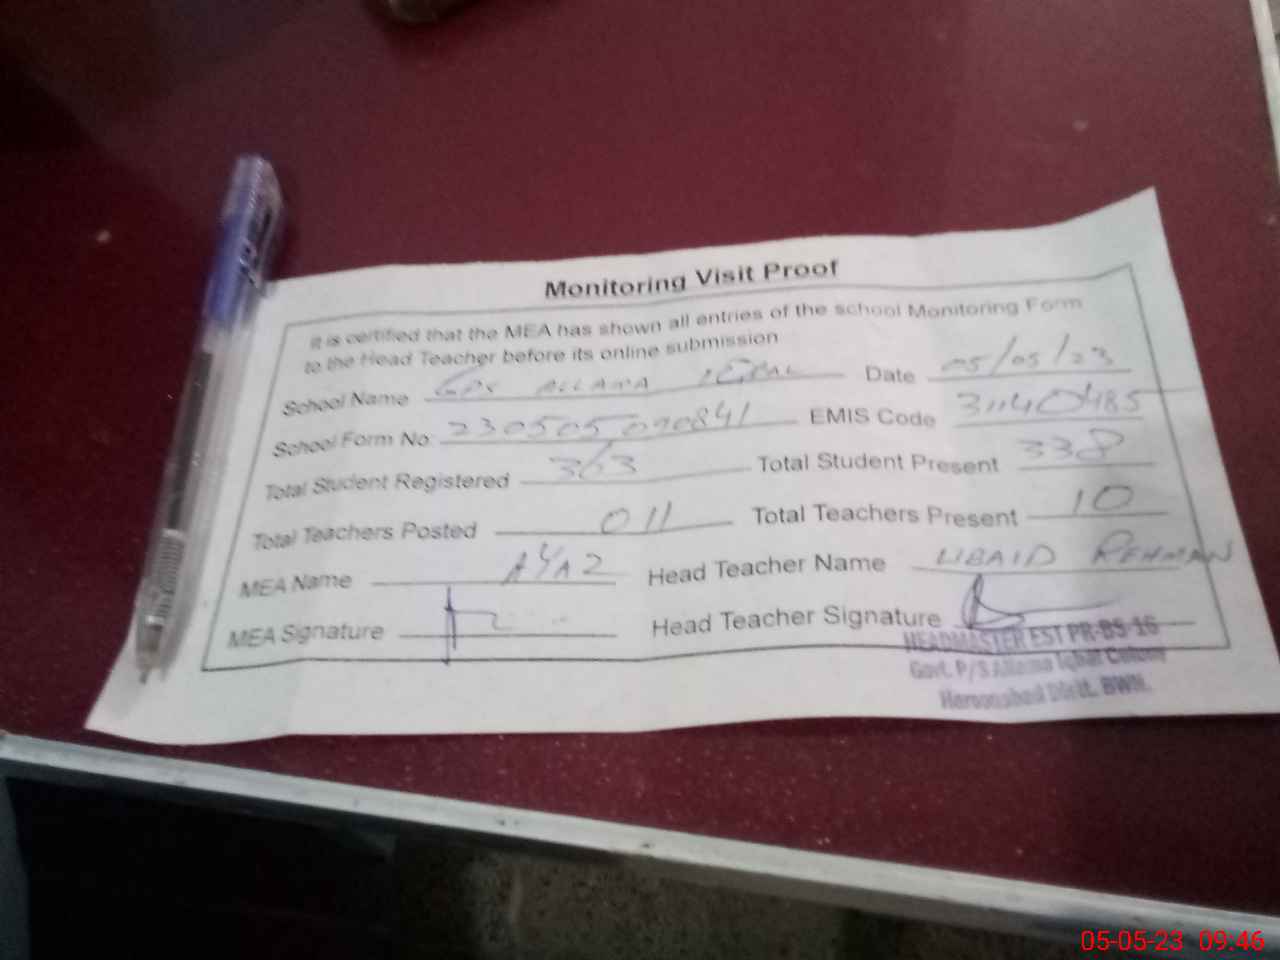 Monitoring Visit Proof
It is certified that the MEA has shown all entries of the school Monitoring Form
to the Head Teacher before its online submission
School Name GPS ALLAMA IQBAL Date 05/05/23
School Form No. 230505090841 EMIS Code 31140485
Total Student Registered 363 Total Student Present 338
Total Teachers Posted 011 Total Teachers Present 10
MEA Name AYAZ Head Teacher Name UBAID REHMAN
MEA Signature Head Teacher Signature
HEADMASTER EST PR-BS-16
Govt. P/S Allama Iqbal Colony
Haroonabad Distt. BWN.
05-05-23 09:46